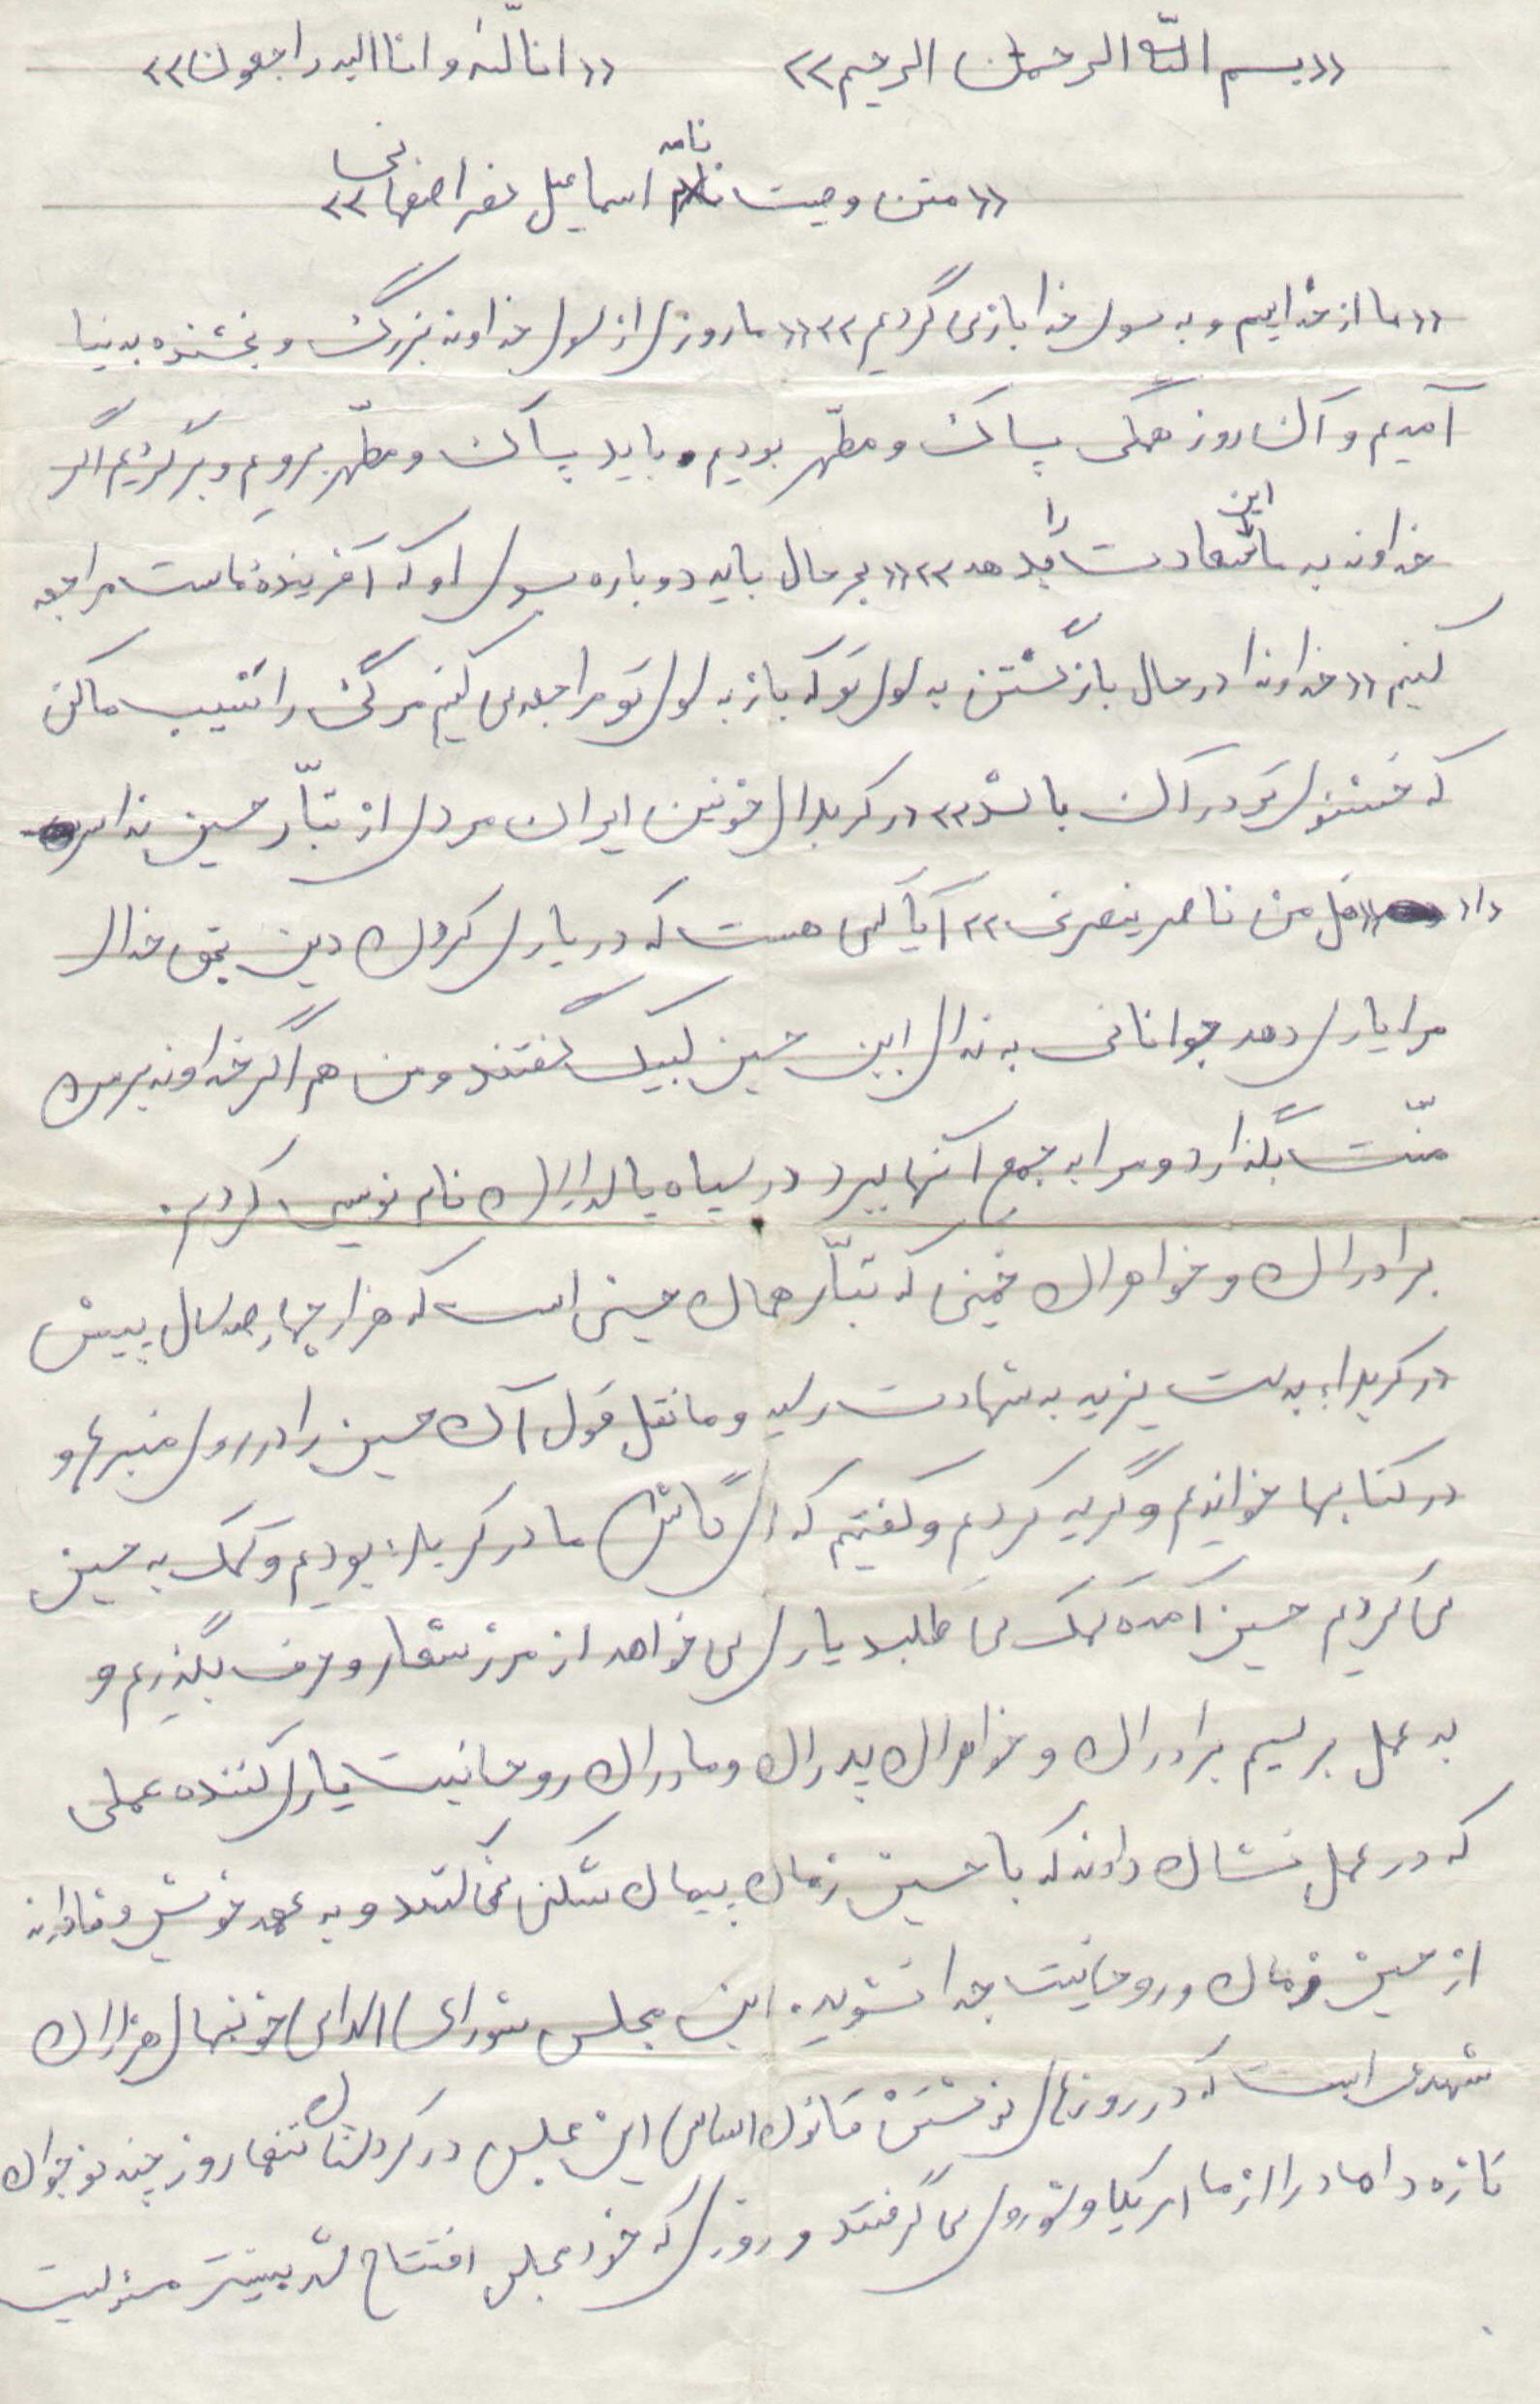 «بسم الله الرحمن الرحیم» «انا لله و انا الیه راجعون»
«متن وصیت نامه اسماعیل نفر اصفهانی»
«ما از خداییم و به سوی خدا باز می گردیم» «ما روزی از سوی خداوند بزرگ و بخشنده بدنیا
آمدیم و آن روز همگی پاک و مطهّر بودیم. باید پاک و مطهّر برویم و برگردیم اگر
خداوند به ما این سعادت را بدهد» «بهر حال باید دوباره بسوی او که آفریننده ماست مراجعه
کنیم «خداوندا در حال بازگشتن به سوی تو که باز به سوی تو مراجعه می کنیم مرگی را نصیب ما کن
که خشنودی تو در آن باشد» در کربلای خونین ایران مردی از تبار حسین ندا سر
داد «هل من ناصر ینصرنی» آیا کسی هست که در یاری کردن دین بحق خدا
مرا یاری دهد جوانانی به ندای این حسین لبیک گفتند و من هم اگر خداوند بر من
منّت بگذارد و مرا به جمع آنها ببرد در سپاه پاسداران نام نویسی کردم.
برادران و خواهران خمینی که تبار همان حسینی است که هزار چهارصد سال پیش
در کربلاء بدست یزید به شهادت رسید و ما نقل قول آن حسین را در روی منبرها و
در کتابها خواندیم و گریه کردیم و گفتیم که ای کاش ما در کربلاء بودیم و کمک به حسین
می کردیم حسین آمده کمک می طلبد یاری می خواهد از مرز شعار و حرف بگذریم و
به عمل برسیم برادران و خواهران پدران و مادران روحانیت یاری کننده عملی
که در عمل نشان دادند که با حسین زمان پیمان شکنی نمی کنند و به عهد خویش وفادارند
از حسین زمان و روحانیت جدا نشوید. این مجلس شورای اسلامی خونبهای هزاران
شهدی است که در روزهای نوشتن قانون اساسی این مجلس در کردستان تنها روز چند نوجوان
تازه داماد را از ما امریکا و شوروی می گرفتند و روزی که خود مجلس افتتاح شد بیشتر مسئولیت